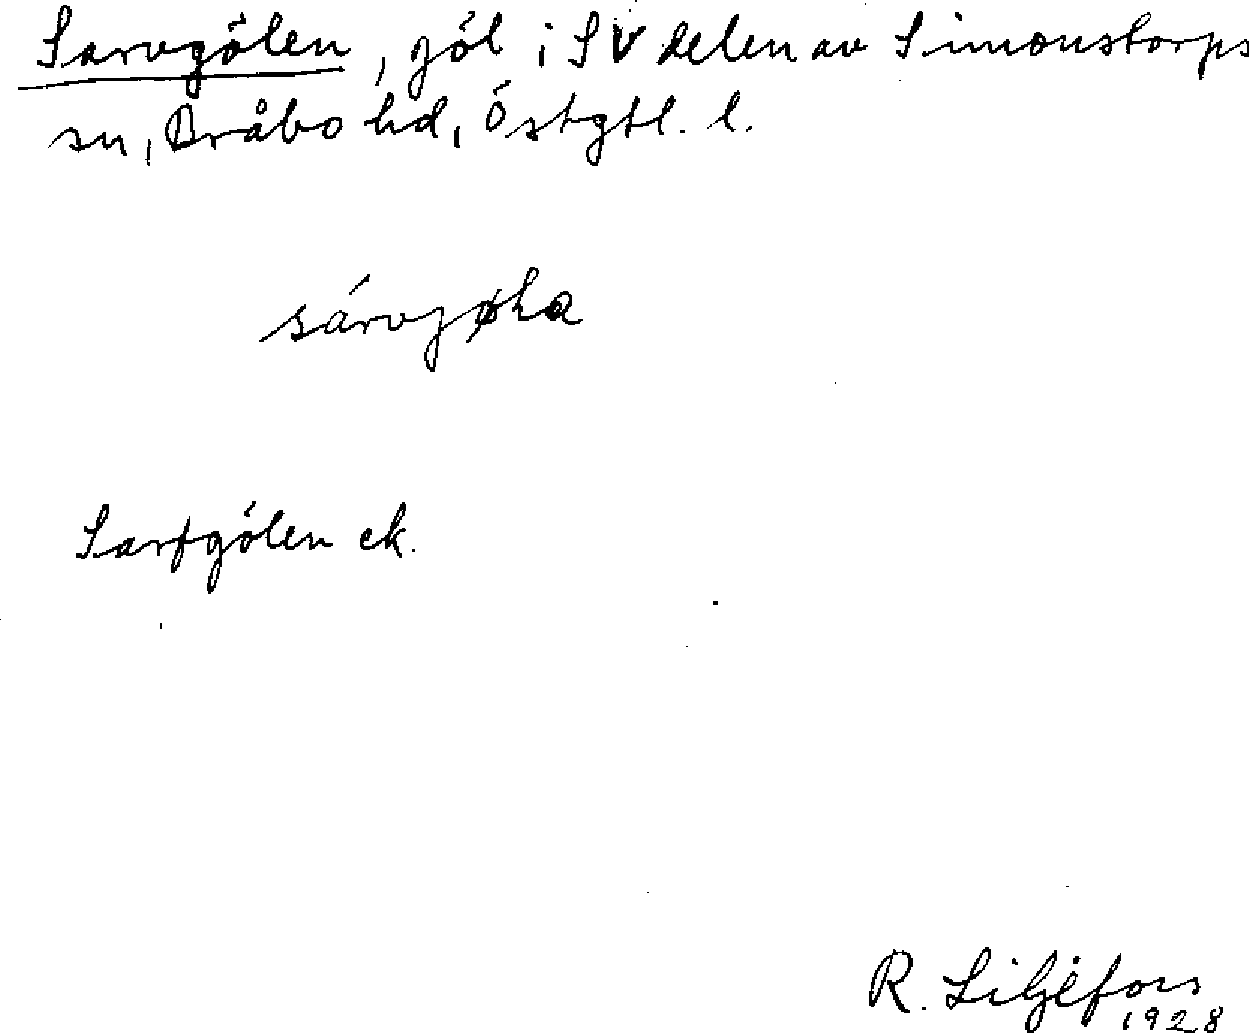 Sarvgölen, göl i SV delen av Simonstorps
sn, Bråbo hd, Östgtl. l.
Sarfgölen ek.
R. Liljefors
1928